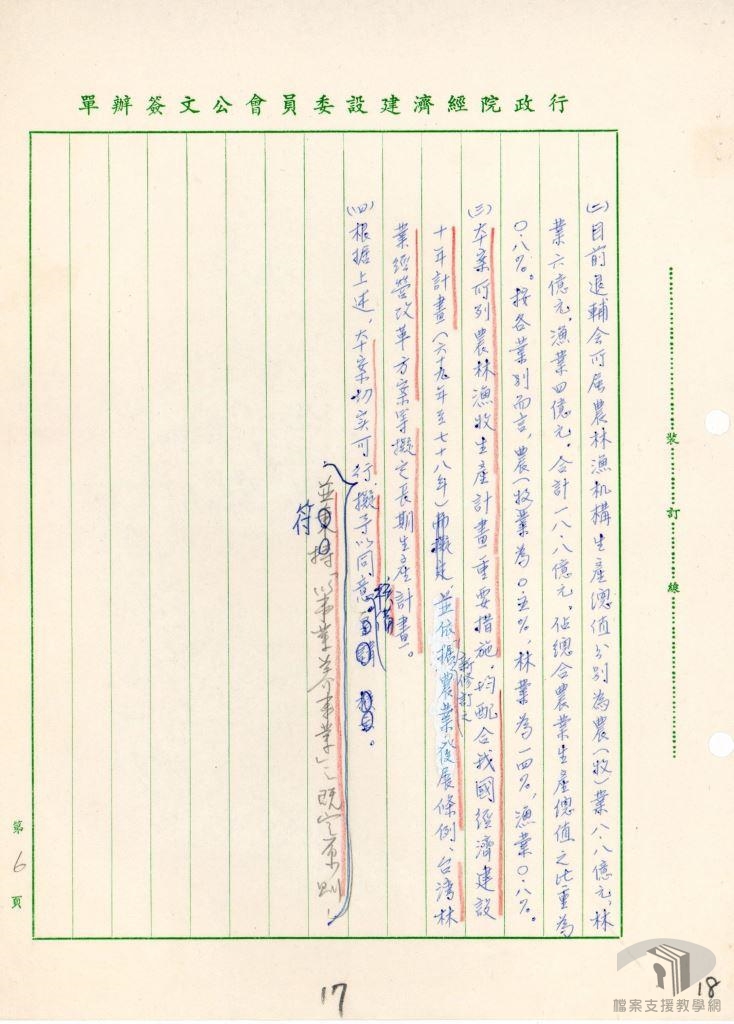 行政院經濟建設委員會公文簽辦單
裝訂線
(二)目前退輔會所屬農林漁机構生產總值分別為農(牧)業八.八億元,林
業六億元,漁業四億元。合計一八.八億元,佔總合農業生產總值之比重為
○.八%。按各業別而言,農(牧業為○.五%,林業為一四%,漁業○.八%。
(三)本案所列農林漁牧生產計畫重要措施,均配合我國經濟建設
十年計畫(六十九年至七十八年)而擬定,並依據新修訂之農業發展條例、台灣林
業經營改革方案等擬定長期生產計畫。
(四)根据上述,本案切实可行,擬予以同意
並符持「以事業養事業」之既定原則,
第6頁
17
18
檔案支援教學網